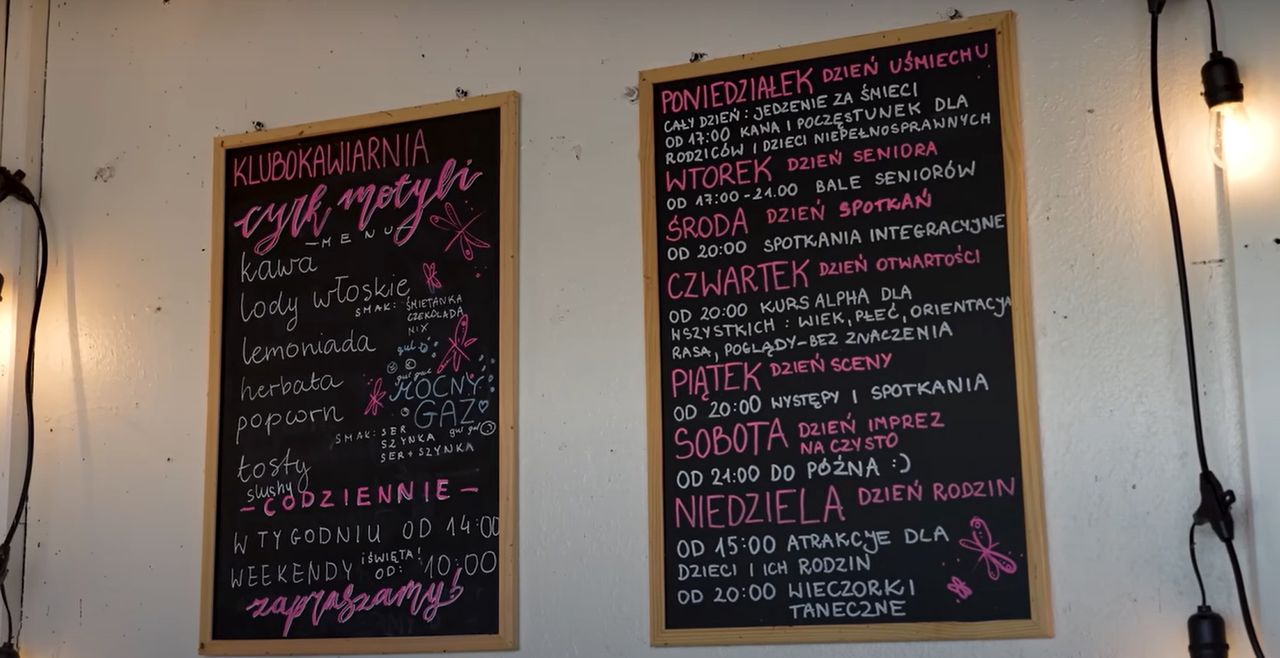 KLUBOKAWIARNIA
cyrk motyli
— MENU
kawa
lody włoskie
SMAK: ŚMIETANKA
CZEKOLADA
MIX
lemoniada
gul
gul gul
herbata
MOCNY
GAZ
popcorn
gul gul
SMAK: SER
SZYNKA
SER + SZYNKA
tosty
slushy
– CODZIENNIE –
W TYGODNIU OD 14:00
WEEKENDY I ŚWIĘTA! OD: 10:00
zapraszamy!
PONIEDZIAŁEK DZIEŃ UŚMIECHU
CAŁY DZIEŃ: JEDZENIE ZA ŚMIECI
OD 17:00 KAWA I POCZĘSTUNEK DLA
RODZICÓW I DZIECI NIEPEŁNOSPRAWNYCH
WTOREK DZIEŃ SENIORA
OD 17:00-21.00 BALE SENIORÓW
ŚRODA DZIEŃ SPOTKAŃ
OD 20:00 SPOTKANIA INTEGRACYJNE
CZWARTEK DZIEŃ OTWARTOŚCI
OD 20:00 KURS ALPHA DLA
WSZYSTKICH: WIEK, PŁEĆ, ORIENTACJA
RASA, POGLĄDY-BEZ ZNACZENIA
PIĄTEK DZIEŃ SCENY
OD 20:00 WYSTĘPY I SPOTKANIA
SOBOTA DZIEŃ IMPREZ
NA CZYSTO
OD 21:00 DO PÓŹNA :)
NIEDZIELA DZIEŃ RODZIN
OD 15:00 ATRAKCJE DLA
DZIECI I ICH RODZIN
OD 20:00 WIECZORKI
TANECZNE